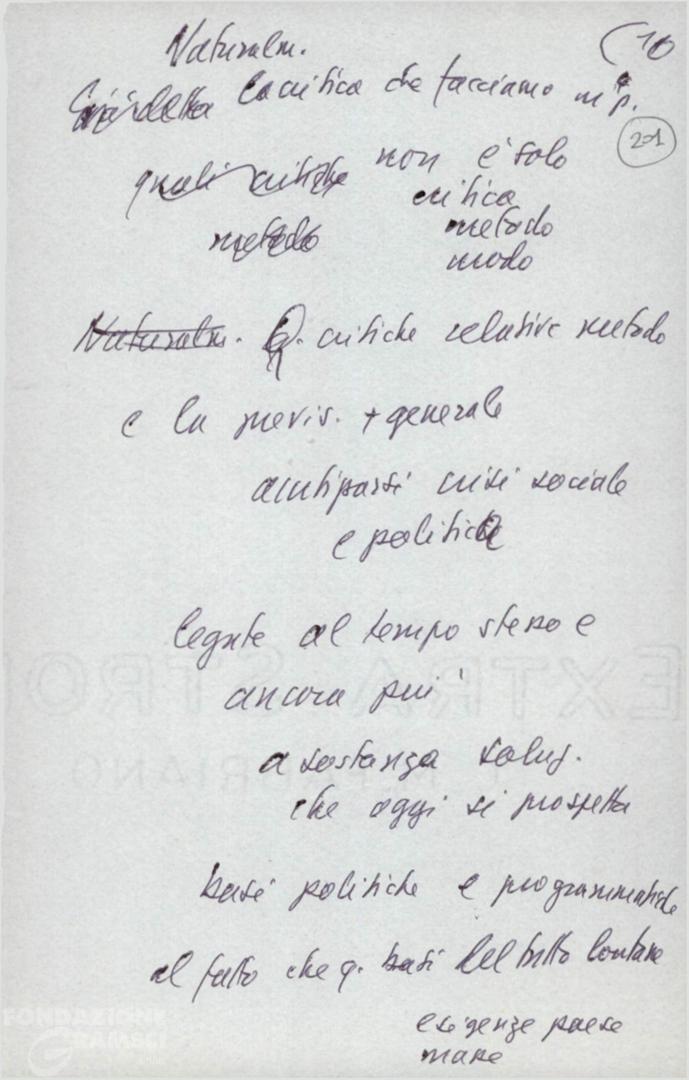 Naturalm.
(10
la critica che facciamo
201
quali critiche non è solo
critica
metodo metodo
modo
Naturalm. Q. critiche relative metodo
e la previs. + generale
anticiparsi crisi sociale
e politica
legate al tempo stesso e
ancora più
a sostanza soluz.
che oggi si prospetta
basi politiche e programmatiche
al fatto che q. basi del tutto lontane
esigenze paese
masse
EXTRA STRO
FABRIANO
FONDAZIONE
GRAMSCI